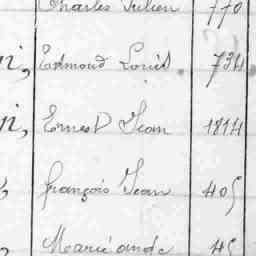 Charles Julien 770
ni, Edmond Louis. 734
ni, Ernest Jean 1814
, françois Jean 405
, Marie ande 45